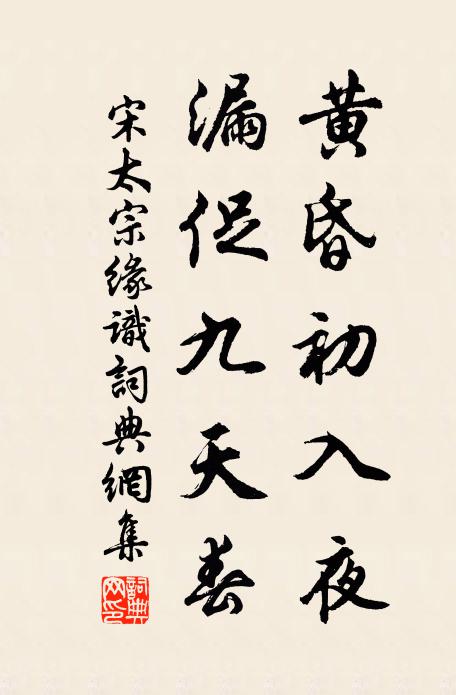 黄昏初入夜
漏促九天春
宋太宗緣識詞典網集
詞典網印